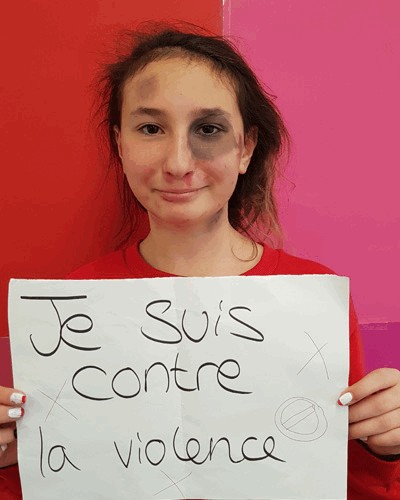 Je suis
contre
la violence